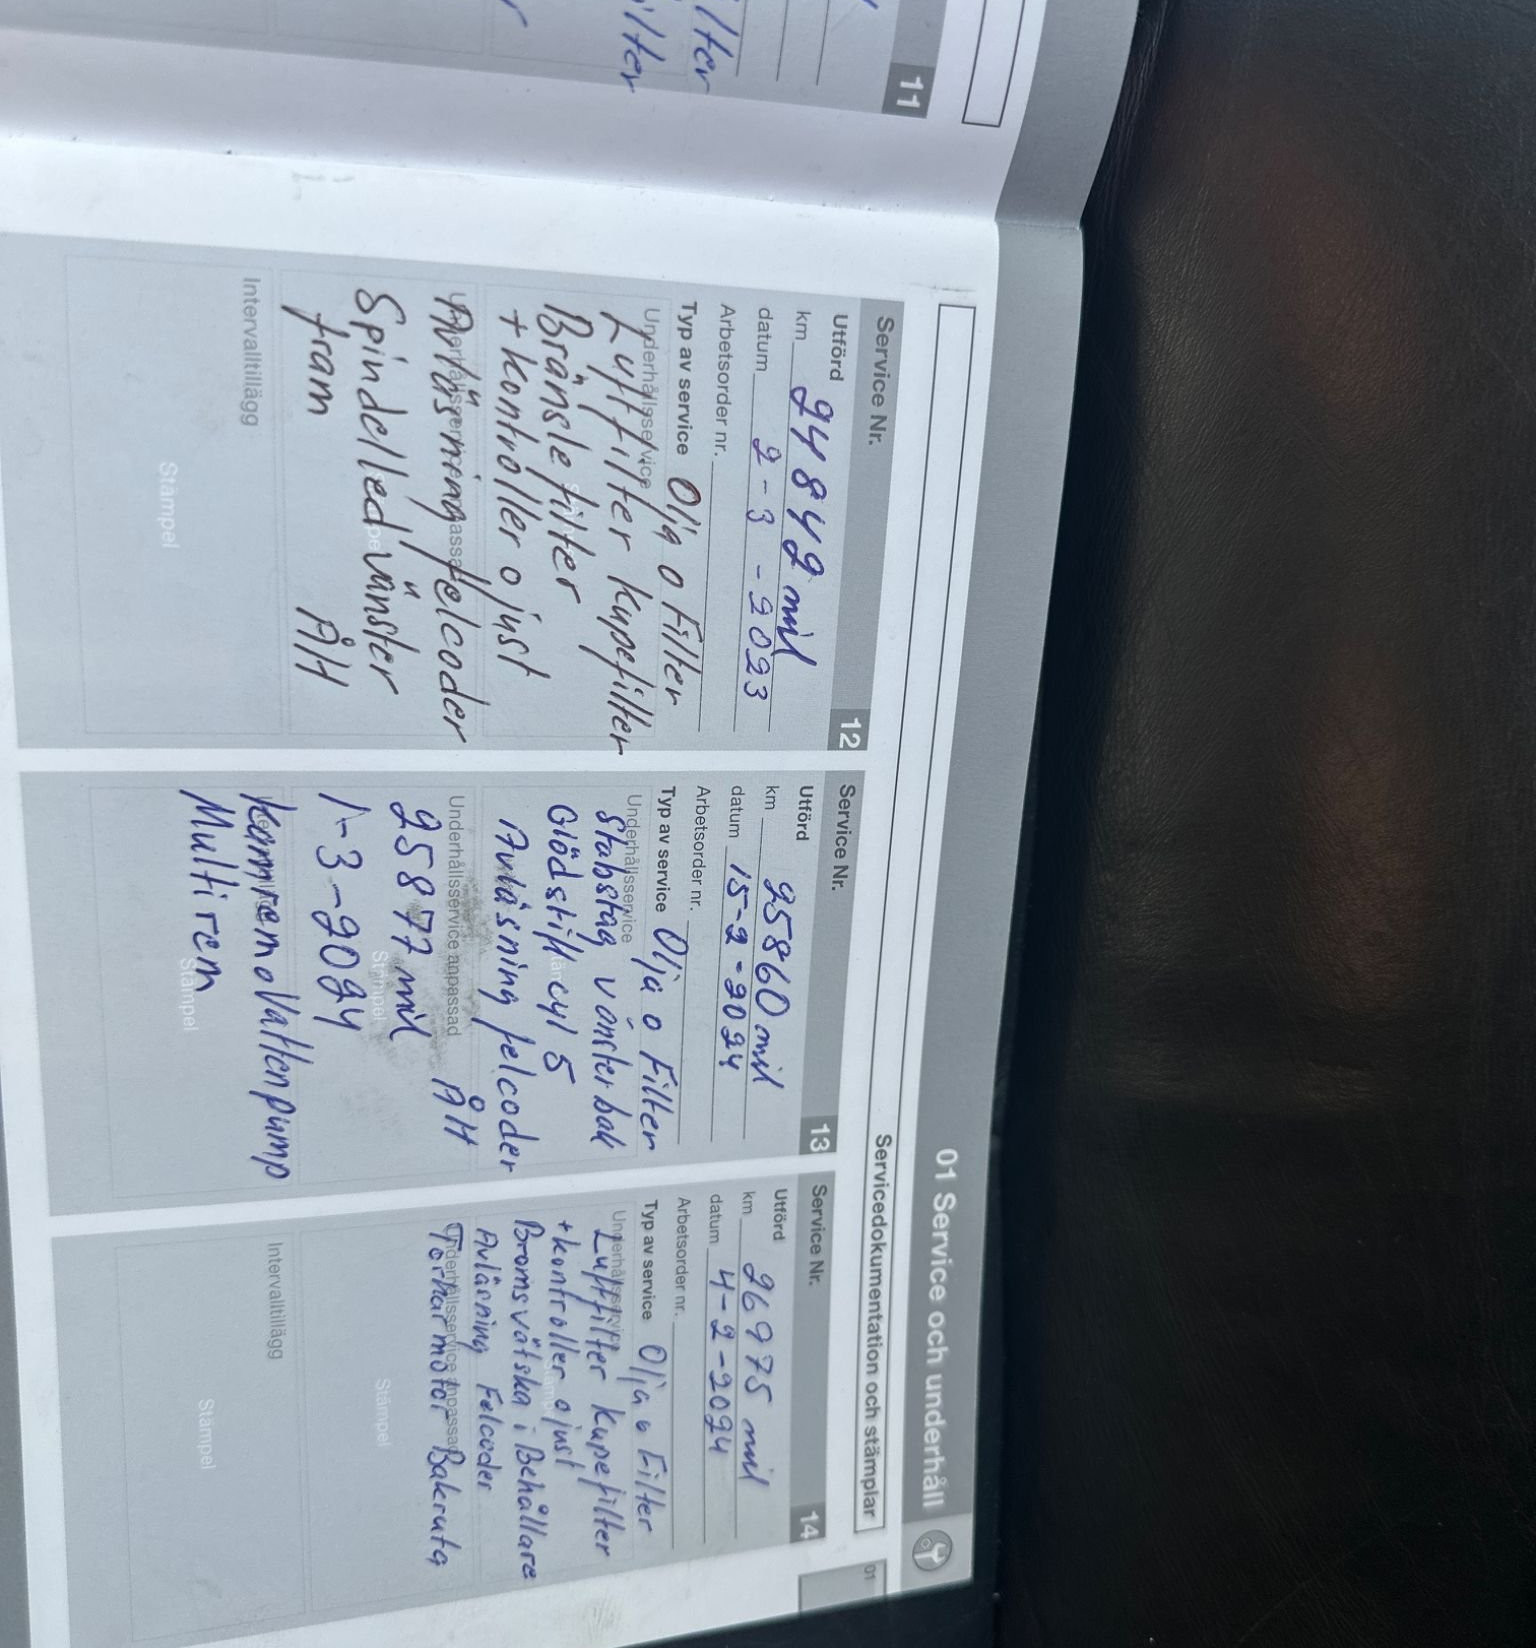 11
lter
ilter
01 Service och underhåll
Servicedokumentation och stämplar
01
Service Nr. 12
Utförd
km 24842 mil
datum 2-3-2023
Arbetsorder nr.
Typ av service Olja o Filter
Underhållsservice
Luftfilter Kupefilter
Bränslefilter
+ kontroller o just
Avläsning felcoder
Spindelled vänster
fram ÅH
Intervalltillägg
Stämpel
Service Nr. 13
Utförd
km 25860 mil
datum 15-2-2024
Arbetsorder nr.
Typ av service Olja o Filter
Underhållsservice
Stabstag vänster bak
Glödstift cyl 5
Avläsning felcoder
Underhållsservice anpassad ÅH
25877 mil
Stämpel
1-3-2024
Kamrem o Vattenpump
Multirem
Stämpel
Service Nr. 14
Utförd
km 26975 mil
datum 4-2-2024
Arbetsorder nr.
Typ av service Olja o Filter
Underhållsservice
Luftfilter Kupefilter
+ kontroller o just
Bromsvätska i Behållare
Avläsning Felcoder
Underhållsservice anpassad
Torkarmotor Bakruta
Stämpel
Intervalltillägg
Stämpel